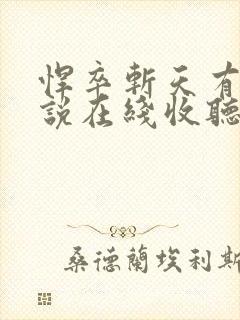 悍卒斬天有
說在綫收聽
桑德蘭埃利斯